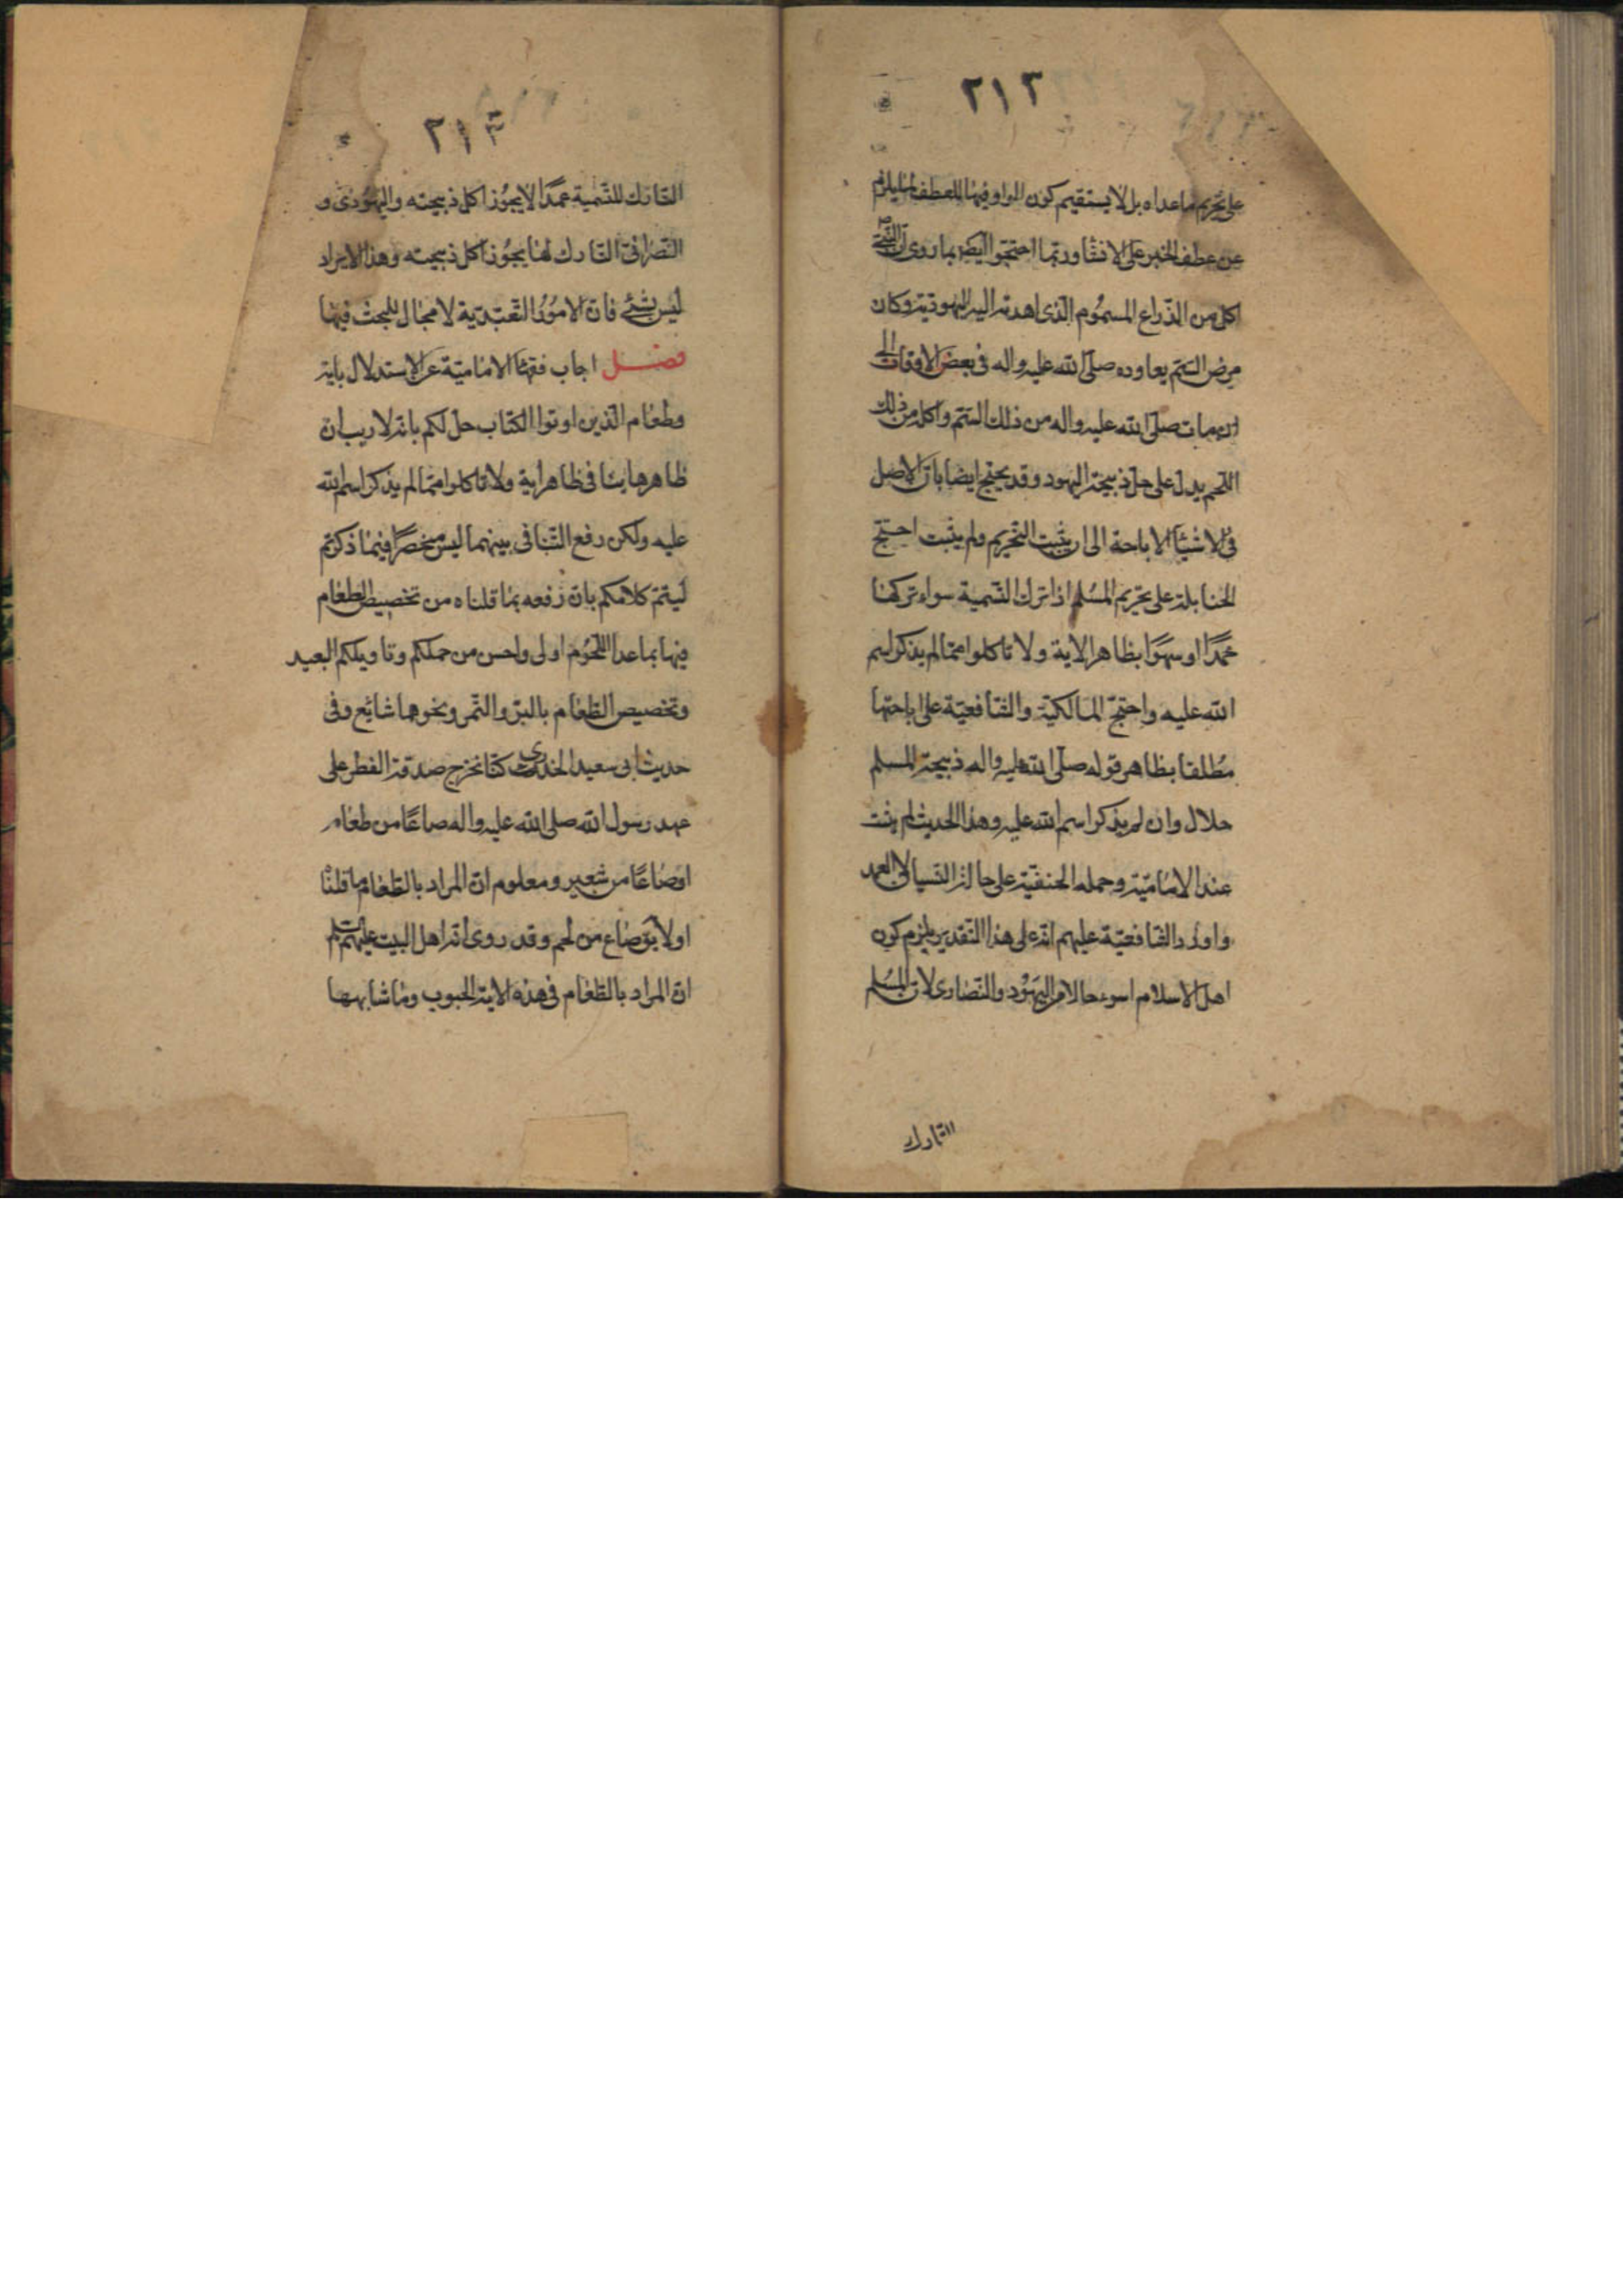 ٢١٢
على تحريم ماعداه بل لا يستقيم كون الواو فيها للعطف لما يلزم
من عطف الخبر على الانشا وربما احتجوا ايضا بما روى ان النبى ص
اكل من الذراع المسموم الذى اهدته اليه اليهودية وكان
مرض السم يعاوده صلى الله عليه واله فى بعض الاوقات الى
ان مات صلى الله عليه واله من ذلك السم واكله من ذلك
اللحم يدل على حل ذبيحة اليهود وقد يحتج ايضا بان الاصل
فى الاشيا الاباحة الى ان يثبت التحريم ولم يثبت احتج
الحنابلة على تحريم المسلم اذا ترك التسمية سواء تركها
عمدًا او سهوًا بظاهر الاية ولا تاكلوا مما لم يذكر اسم
الله عليه واحتج المالكية والشافعية على اباحتها
مطلقا بظاهر قوله صلى الله عليه واله ذبيحة المسلم
حلال وان لم يذكر اسم الله عليه وهذا الحديث لم يثبت
عند الامامية وحمله الحنفية على حالة النسيان لا العمد
واورد الشافعية عليهم انه على هذا التقدير يلزم كون
اهل الاسلام اسوء حالا من اليهود والنصارى لان المسلم
التارك
٢١٣
التارك للتسمية عمدًا لا يجوز اكل ذبيحته واليهودى و
النصرانى التارك لها يجوز اكل ذبيحته وهذا الايراد
ليس بشئ فان الامور التعبدية لا مجال للبحث فيها
فصل اجاب فقهاء الامامية عن الاستدلال باية
وطعام الذين اوتوا الكتاب حل لكم بانه لا ريب ان
ظاهرها ينافى ظاهر اية ولا تاكلوا مما لم يذكر اسم الله
عليه ولكن رفع التنافى بينهما ليس منحصرًا فيما ذكرتم
ليتم كلامكم بان رفعه بما قلناه من تخصيص الطعام
فيها بما عدا اللحوم اولى واحسن من حملكم وتاويلكم البعيد
وتخصيص الطعام بالبر والتمر ونحوهما شائع وفى
حديث ابى سعيد الخدرى كنا نخرج صدقة الفطر على
عهد رسول الله صلى الله عليه واله صاعًا من طعام
او صاعًا من شعير ومعلوم ان المراد بالطعام ما قلنا
اولا صاع من لحم وقد روى ائمة اهل البيت عليهم السلم
ان المراد بالطعام فى هذه الاية الحبوب وما شابهها